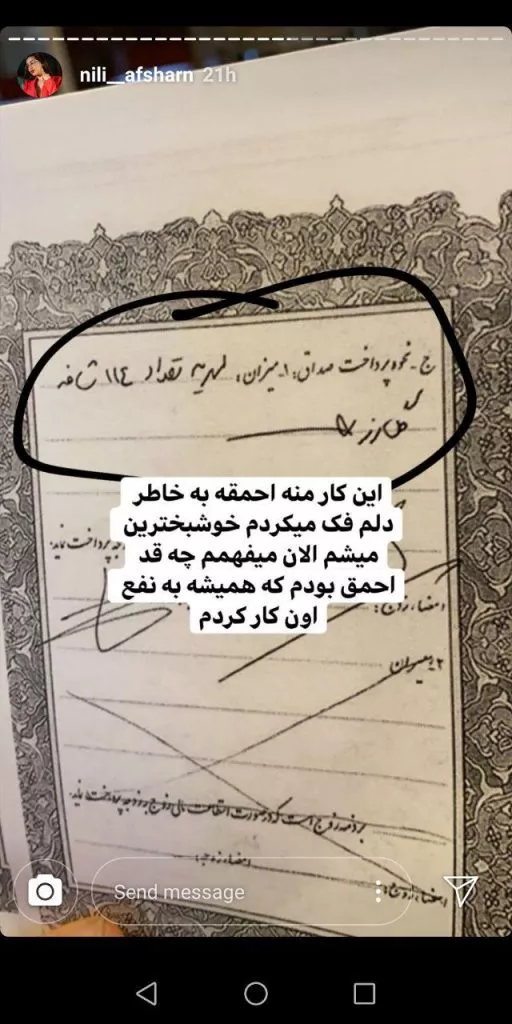 nili__afsharn 21h
ج - نحوه پرداخت صداق: ۱- میزان: مهریه تعداد ۱۱٤ شاخه
گل رز
این کار منه احمقه به خاطر
دلم فک میکردم خوشبخترین
میشم الان میفهمم چه قد
احمق بودم که همیشه به نفع
اون کار کردم
پرداخت نماید.
امضاء زوج:
بر ذمه زوج است که در صورت استطاعت مالی زوج به زوجه پرداخت نماید.
امضاء زوجه:
امضاء زوج:
Send message